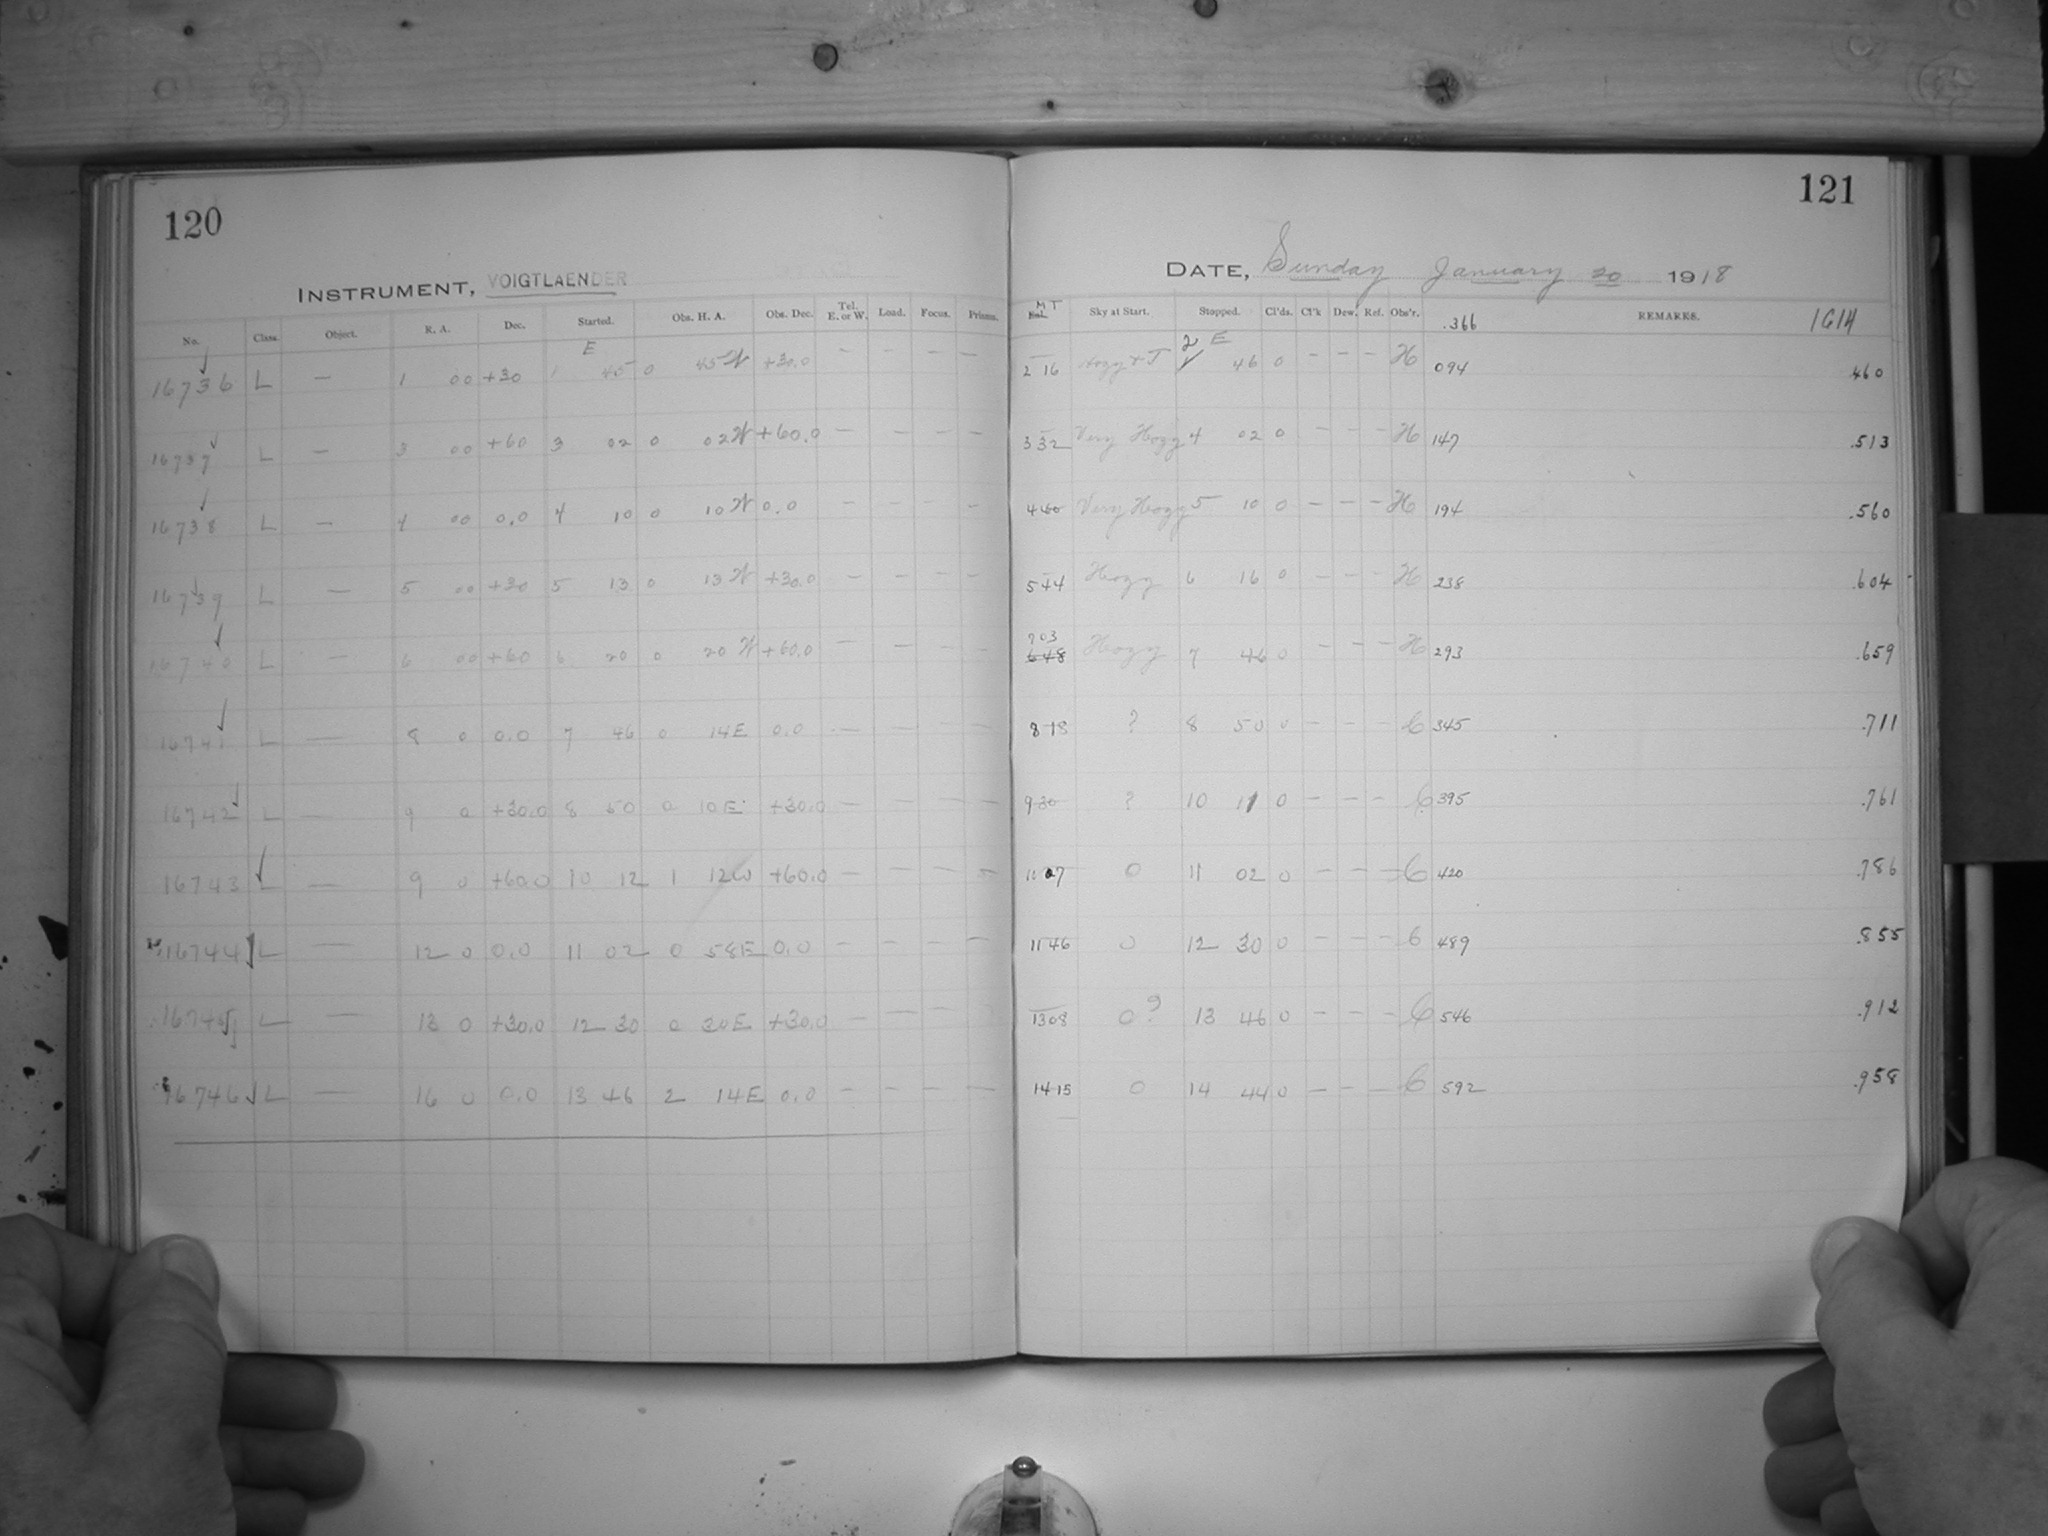 120
INSTRUMENT, VOIGTLAENDER
No. Class. Object. R. A. Dec. Started. Obs. H. A. Obs. Dec. Tel. E. or W. Load. Focus. Prisms.
E
16736 L — 1 00 +30 1 45 0 45 W +30.0 — — — —
16737 L — 3 00 +60 3 02 0 02 W +60.0 — — — —
16738 L — 4 00 0.0 4 10 0 10 W 0.0 — — — —
16739 L — 5 00 +30 5 13 0 13 W +30.0 — — — —
16740 L — 6 00 +60 6 20 0 20 W +60.0 — — — —
16741 L — 8 0 0.0 7 46 0 14 E 0.0 — — — —
16742 L — 9 0 +30.0 8 50 0 10 E +30.0 — — — —
16743 L — 9 0 +60.0 10 12 1 12 W +60.0 — — — —
16744 L — 12 0 0.0 11 02 0 58 E 0.0 — — — —
16745 L — 13 0 +30.0 12 30 0 30 E +30.0 — — — —
16746 L — 16 0 0.0 13 46 2 14 E 0.0 — — — —
121
DATE, Sunday January 20 1918
M T Sky at Start. Stopped. Cl'ds. Cl'k Dew. Ref. Obs'r. .366 REMARKS. 1614
2 E
2 16 Hozy + J 46 0 — — — H 094 .460
3 32 Very Hozy 4 02 0 — — — H 147 .513
4 40 Very Hozy 5 10 0 — — — H 194 .560
5 44 Hozy 6 16 0 — — — H 238 .604
7 03
6 48 Hozy 7 46 0 — — — H 293 .659
8 18 ? 8 50 0 — — — C 345 .711
9 30 ? 10 11 0 — — — C 395 .761
10 27 0 11 02 0 — — — C 420 .786
11 46 0 12 30 0 — — — C 489 .855
13 08 0? 13 46 0 — — — C 546 .912
14 15 0 14 44 0 — — — C 592 .958